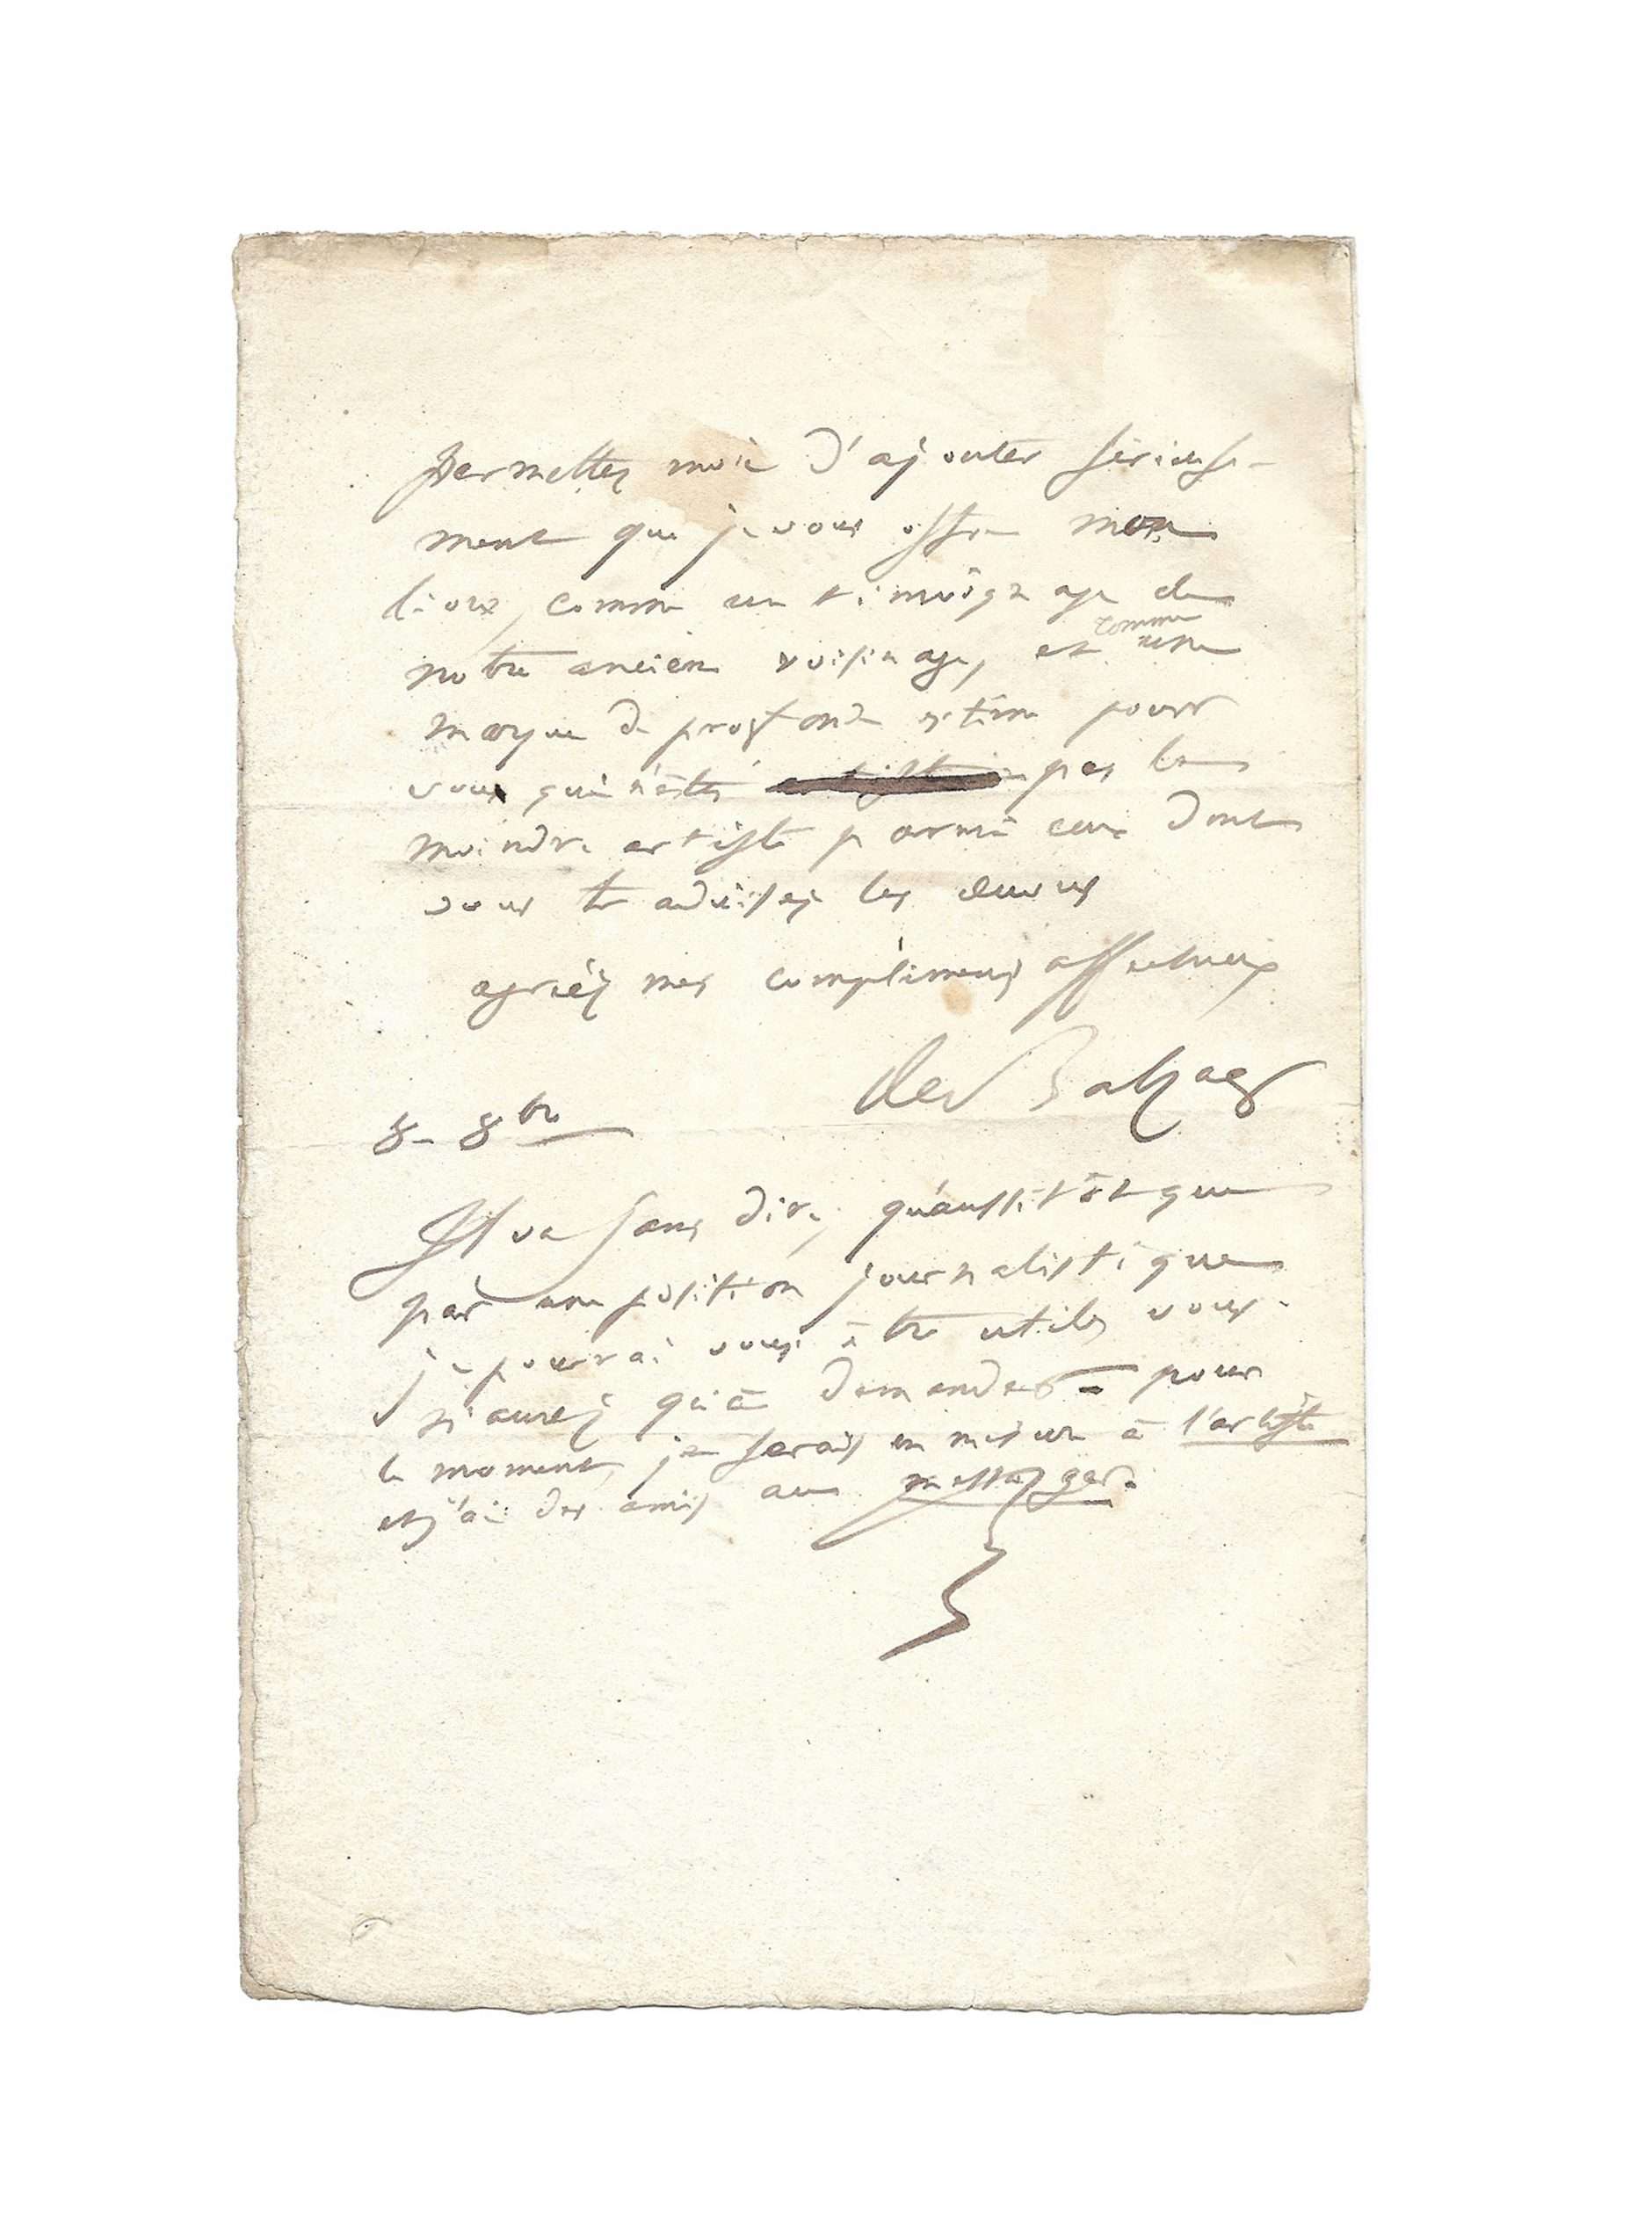 Permettez moi d'ajouter sérieuse-
ment que je vous offre mon
livre, comme un témoignage de
notre ancien voisinage, et comme une
marque de profonde estime pour
vous qui n'êtes pas le
moindre artiste parmi ceux dont
vous traduisez les œuvres
agréez mes complimens affectueux
de Balzac
8- 8bre
Il va sans dire, qu'aussitôt que
par une position journalistique
je pourrai vous être utile, vous
n'aurez qu'à demander - pour
le moment, je serais en mesure à l'artiste
et j'ai des amis au messager.